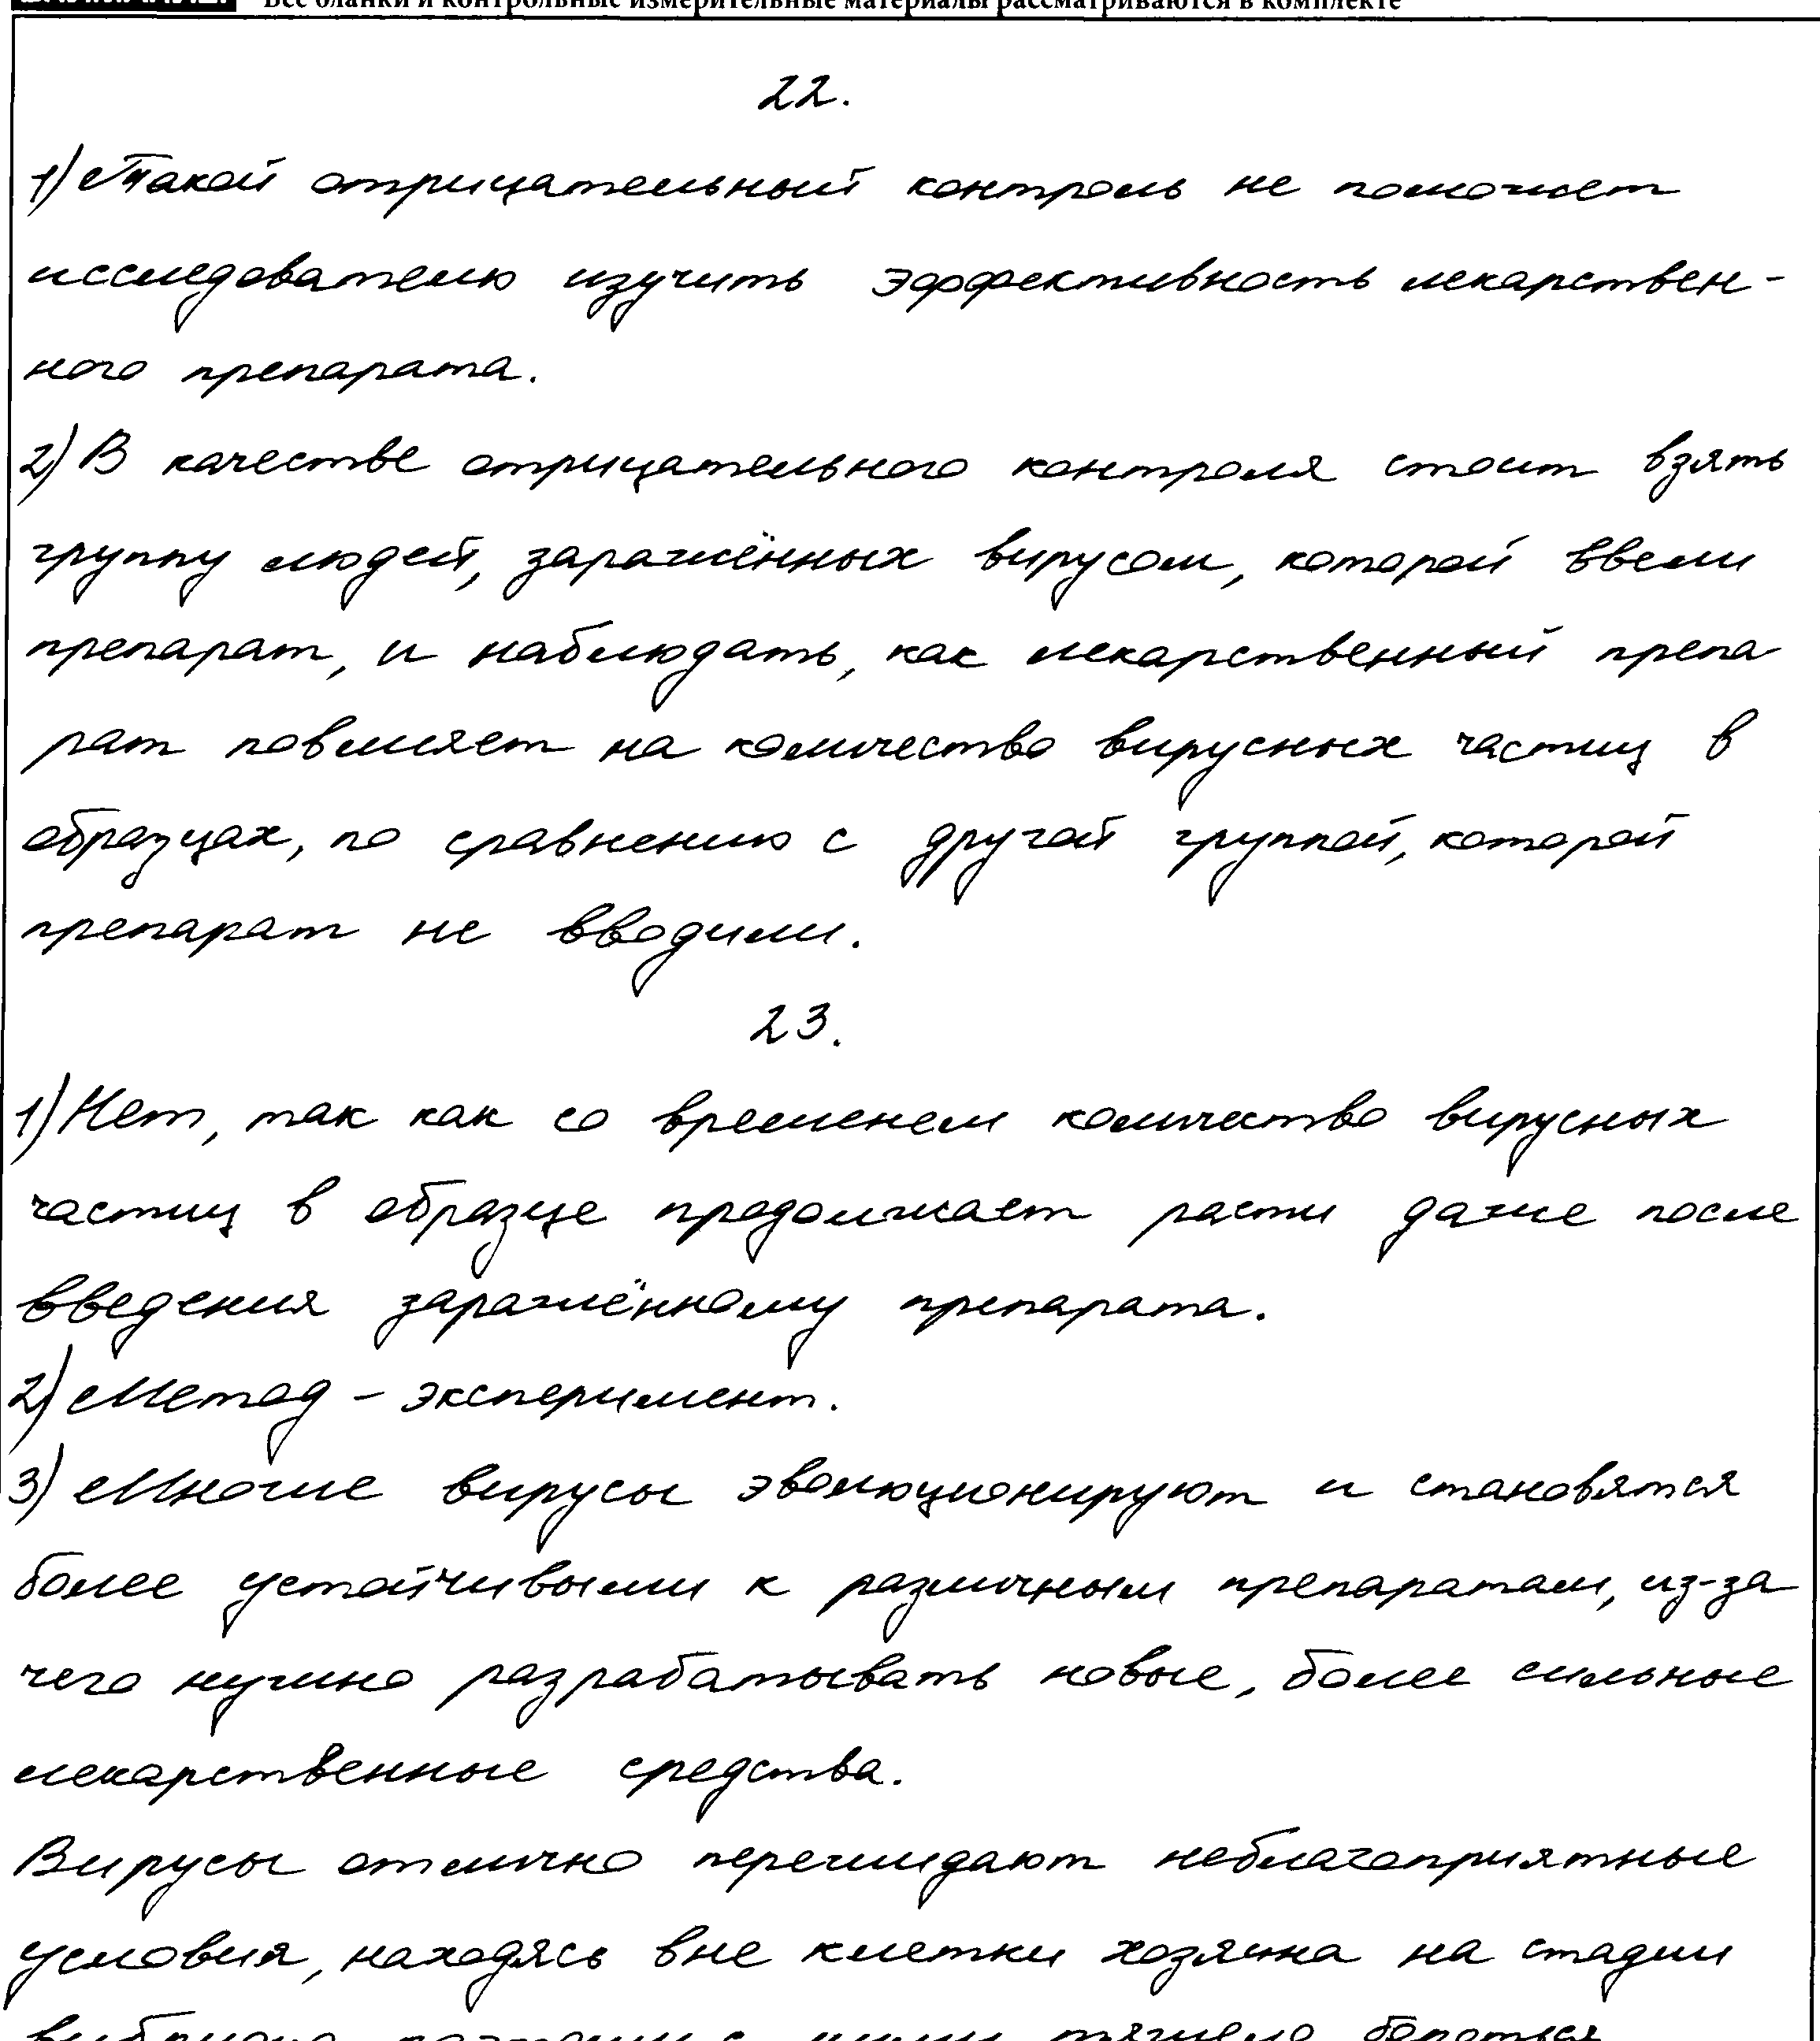 Все бланки и контрольные измерительные материалы рассматриваются в комплекте
22.
1) Такой отрицательный контроль не поможет
исследователю изучить эффективность лекарствен-
ного препарата.
2) В качестве отрицательного контроля стоит взять
группу людей, заражённых вирусом, которой ввели
препарат, и наблюдать, как лекарственный препа
рат повлияет на количество вирусных частиц в
образцах, по сравнению с другой группой, которой
препарат не вводили.
23.
1) Нет, так как со временем количество вирусных
частиц в образце продолжает расти даже после
введения заражённому препарата.
2) Метод - эксперимент.
3) Многие вирусы эволюционируют и становятся
более устойчивыми к различным препаратам, из-за
чего нужно разрабатывать новые, более сильные
лекарственные средства.
Вирусы отлично пережидают неблагоприятные
условия, находясь вне клетки хозяина на стадии
с ними тяжело бороться